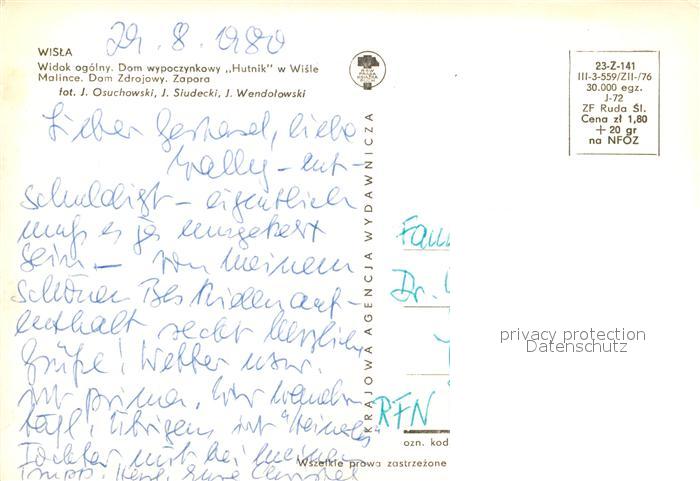 29.8.1980
WISŁA
Widok ogólny. Dom wypoczynkowy „Hutnik" w Wiśle
Malince. Dom Zdrojowy. Zapora
fot. J. Osuchowski, J. Siudecki, J. Wendołowski
Lieber Gerhard, liebe
Wally – ent-
schuldigt – eigentlich
muß es ja umgekehrt
sein – von meinem
schönen Beskidenauf-
enthalt recht herzliche
Grüße! Wetter usw.
ist prima, wir wandern
tägl. Übrigens ist
Tochter mit bei meiner
KRAJOWA AGENCJA WYDAWNICZA
23-Z-141
III-3-559/ZII-/76
30.000 egz.
J-72
ZF Ruda Śl.
Cena zł 1,80
+ 20 gr
na NFOZ
Fam
Dr.
RFN
ozn. kod
Wszelkie prawa zastrzeżone
privacy protection
Datenschutz